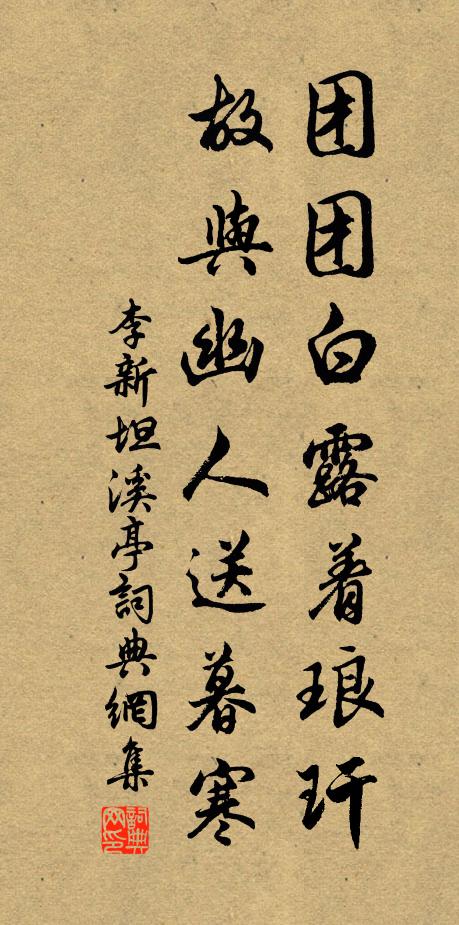 团团白露着琅玕
故與幽人送暮寒
李新坦溪亭詞典網集
詞典网印